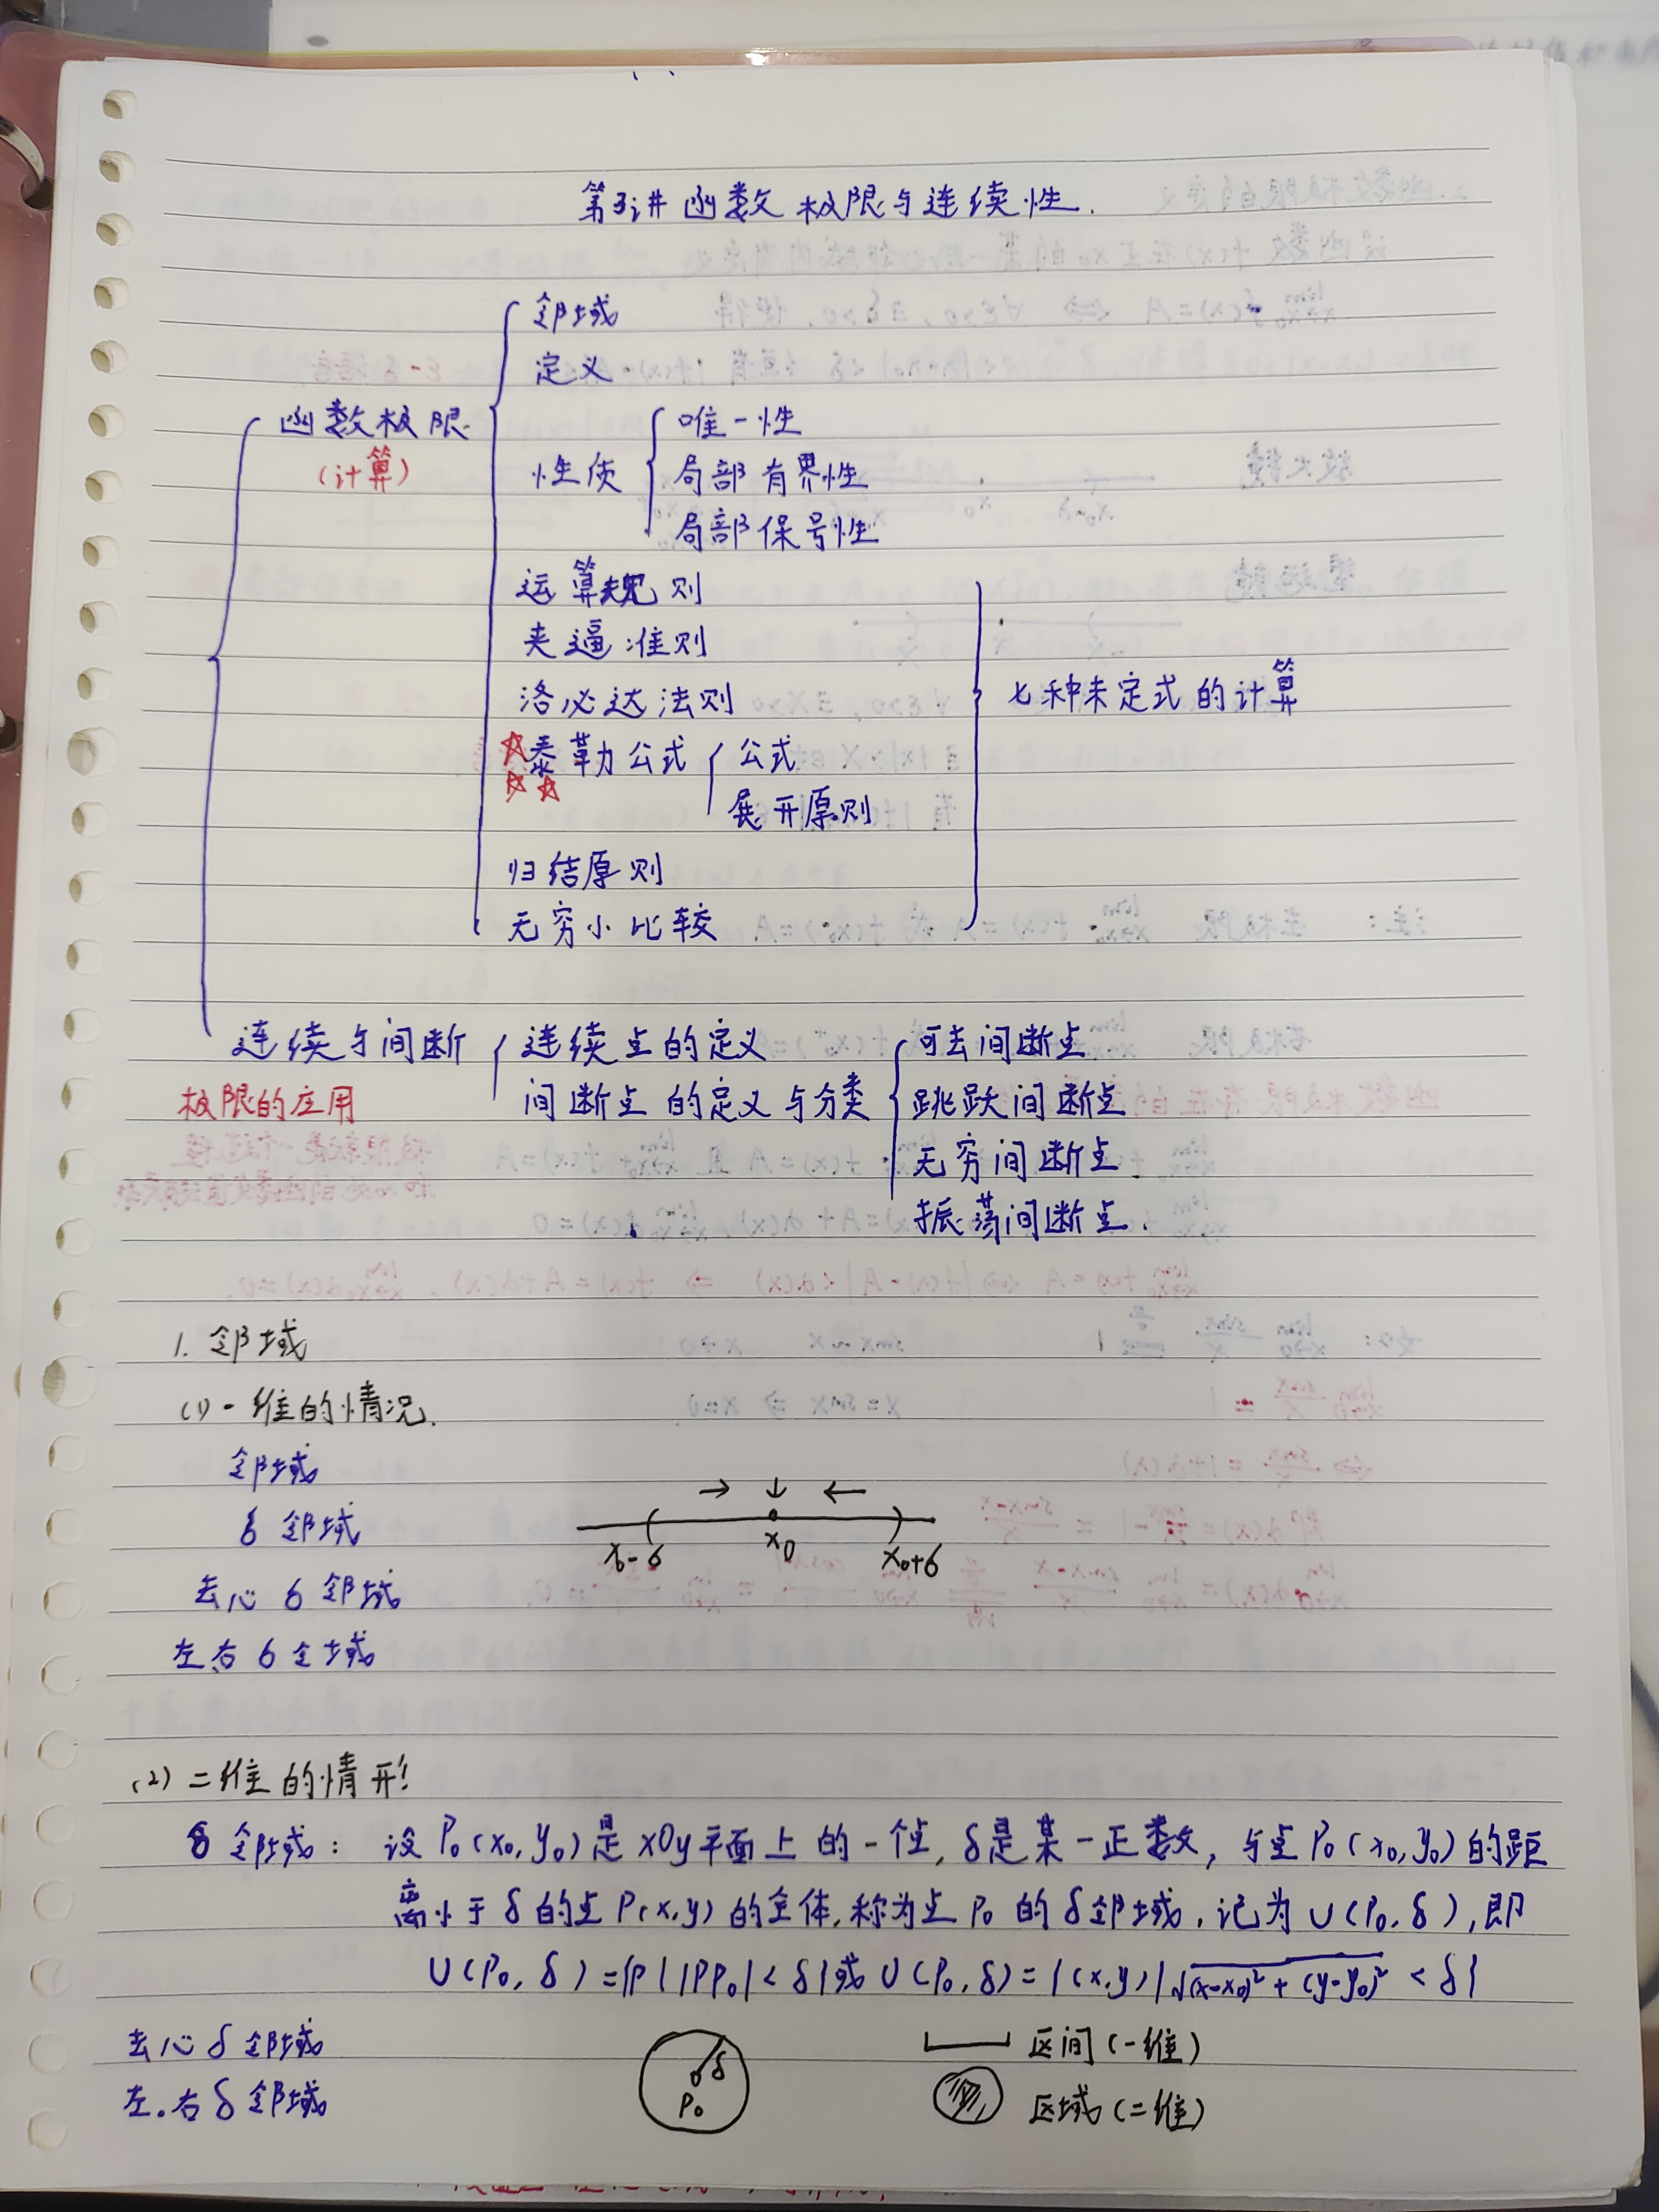 第3讲 函数极限与连续性.
邻域
定义
函数极限
(计算)
性质
唯一性
局部有界性
局部保号性
运算规则
夹逼准则
洛必达法则
泰勒公式
公式
展开原则
归结原则
无穷小比较
七种未定式的计算
连续与间断
极限的应用
连续点的定义
间断点的定义与分类
可去间断点
跳跃间断点
无穷间断点
振荡间断点.
1. 邻域
(1) 一维的情况.
邻域
δ 邻域
→ ↓ ←
x₀-δ x₀ x₀+δ
去心 δ 邻域
左右 δ 邻域
(2) 二维的情形!
δ 邻域: 设 P₀(x₀,y₀)是xOy平面上的一个点, δ是某一正数, 与点P₀(x₀,y₀)的距
离小于δ的点P(x,y)的全体,称为点P₀的δ邻域, 记为U(P₀,δ),即
U(P₀,δ)={P||PP₀|<δ}或U(P₀,δ)={(x,y)|√(x-x₀)²+(y-y₀)² <δ}
去心δ邻域
左.右δ邻域
δ
P₀
区间(一维)
区域(二维)